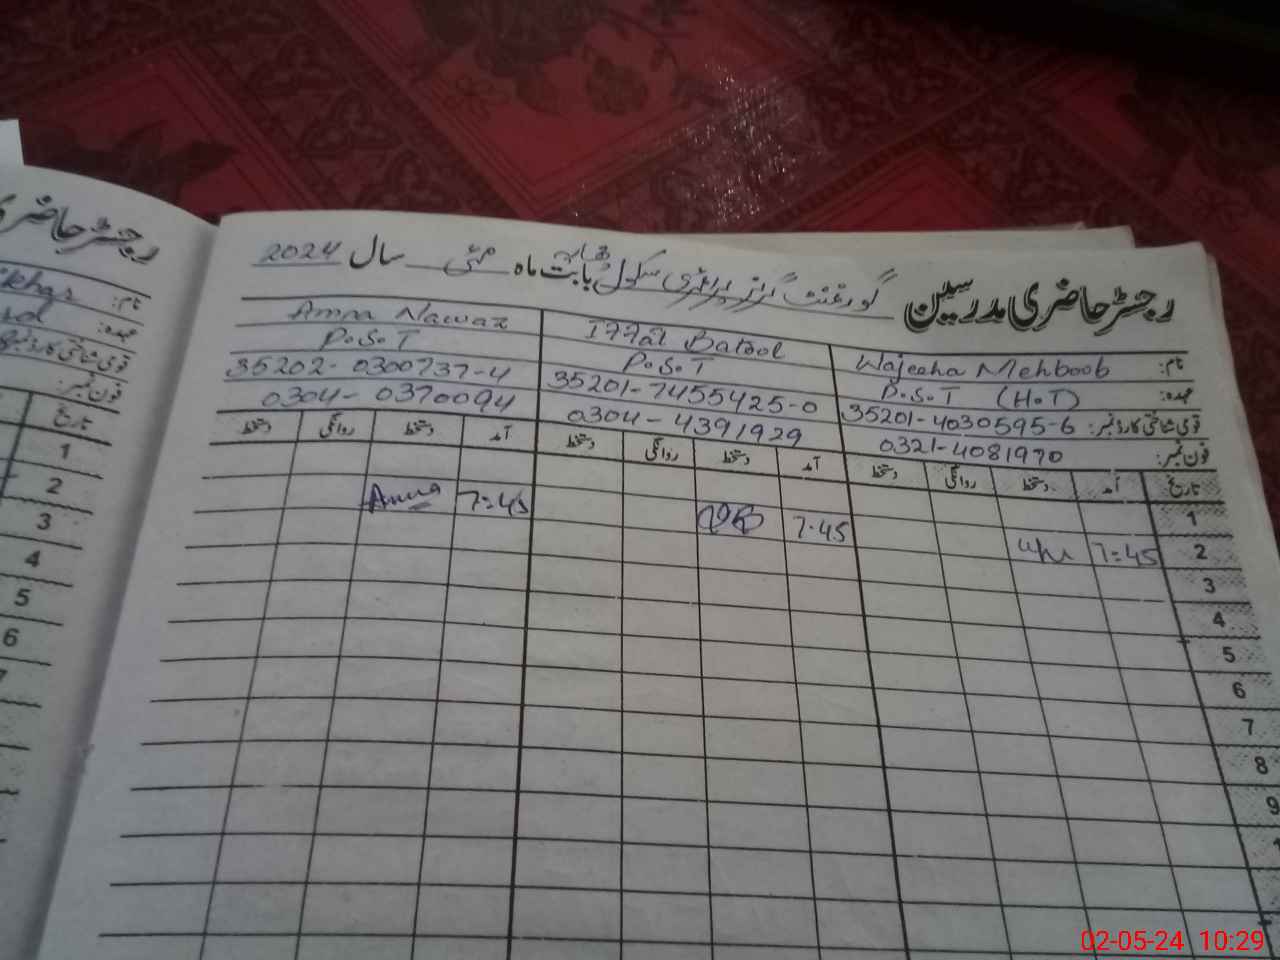 رجسٹر حاضری مدرسین گورنمنٹ گرلز پرائمری سکول بابت ماہ مئی سال 2024
نام: Wajeeha Mehboob Iffat Batool Amna Nawaz
عہدہ: P.S.T (H.T) P.S.T P.S.T
قومی شناختی کارڈ نمبر: 35201-4030595-6 35201-7455425-0 35202-0300737-4
فون نمبر: 0321-4081970 0304-4391929 0304-0370094
تاریخ آمد دستخط روانگی دستخط آمد دستخط روانگی دستخط آمد دستخط روانگی دستخط
1
2 7:45 7:45 7:45 Amna
3
4
5
6
7
8
9
رجسٹر حاضری
نام:
عہدہ:
قومی شناختی کارڈ نمبر
فون نمبر:
تاریخ
1
2
3
4
5
6
02-05-24 10:29